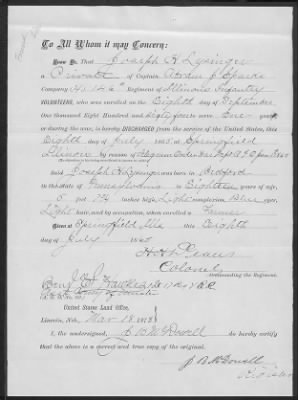 To All Whom it may Concern:
Know Ye, That Joseph H Lysinger
a Private of Captain
Company (H) 146th Regiment of Illinois Infantry
VOLUNTEERS, who was enrolled on the Eighth day of September
One thousand Eight Hundred and sixty four to serve One year
or during the war, is hereby DISCHARGED from the service of the United States, this
Eighth day of July 1865 at Springfield
Illinois by reason of
Said Joseph H Lysinger was born in Bedford
in the State of Pennsylvania is Eighteen years of age,
5 feet 7 1/4 inches high, Light complexion Blue eyes,
Light hair, and by occupation, when enrolled a Farmer
Given at Springfield Ills this Eighth
day of July 1865
H H Deans
Colonel
Commanding the Regiment.
United States Land Office,
Lincoln, Neb. Mar 18 187
I, the undersigned, J B McDowell do hereby certify
that the above is a correct and true copy of the original.
J B McDowell
Register